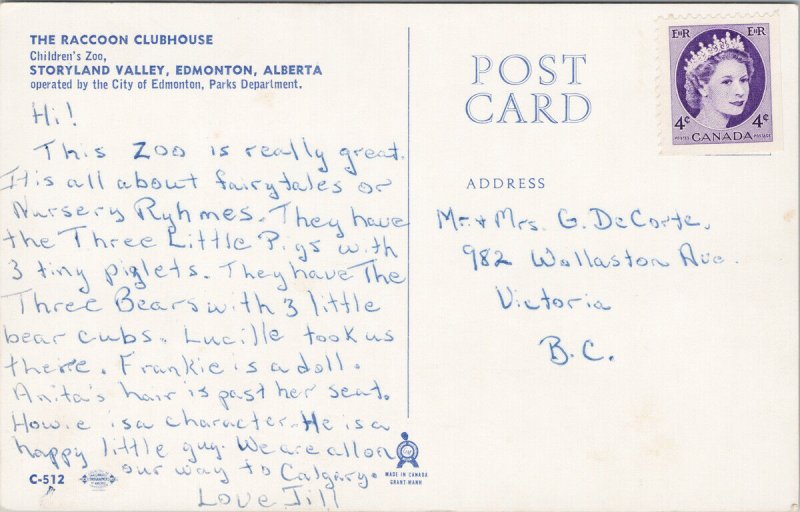 THE RACCOON CLUBHOUSE
Children's Zoo,
STORYLAND VALLEY, EDMONTON, ALBERTA
operated by the City of Edmonton, Parks Department.
Hi!
This Zoo is really great.
It is all about fairytales or
Nursery Ryhmes. They have
the Three Little Pigs with
3 tiny piglets. They have The
Three Bears with 3 little
bear cubs. Lucille took us
there. Frankie is a doll.
Anita's hair is past her seat.
Howie is a character. He is a
happy little guy. We are all on
our way to Calgary.
Love Jill
C-512
MADE IN CANADA
GRANT-MANN
POST
CARD
ADDRESS
Mr. + Mrs. G. DeCorte,
982 Wollaston Ave.
Victoria
B.C.
EIIR EIIR
4¢ 4¢
POSTES CANADA POSTAGE